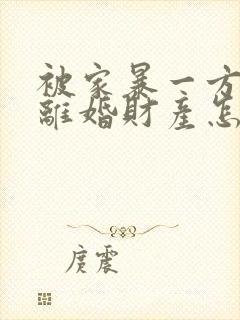 被家暴一方
離婚財產怎
庚震